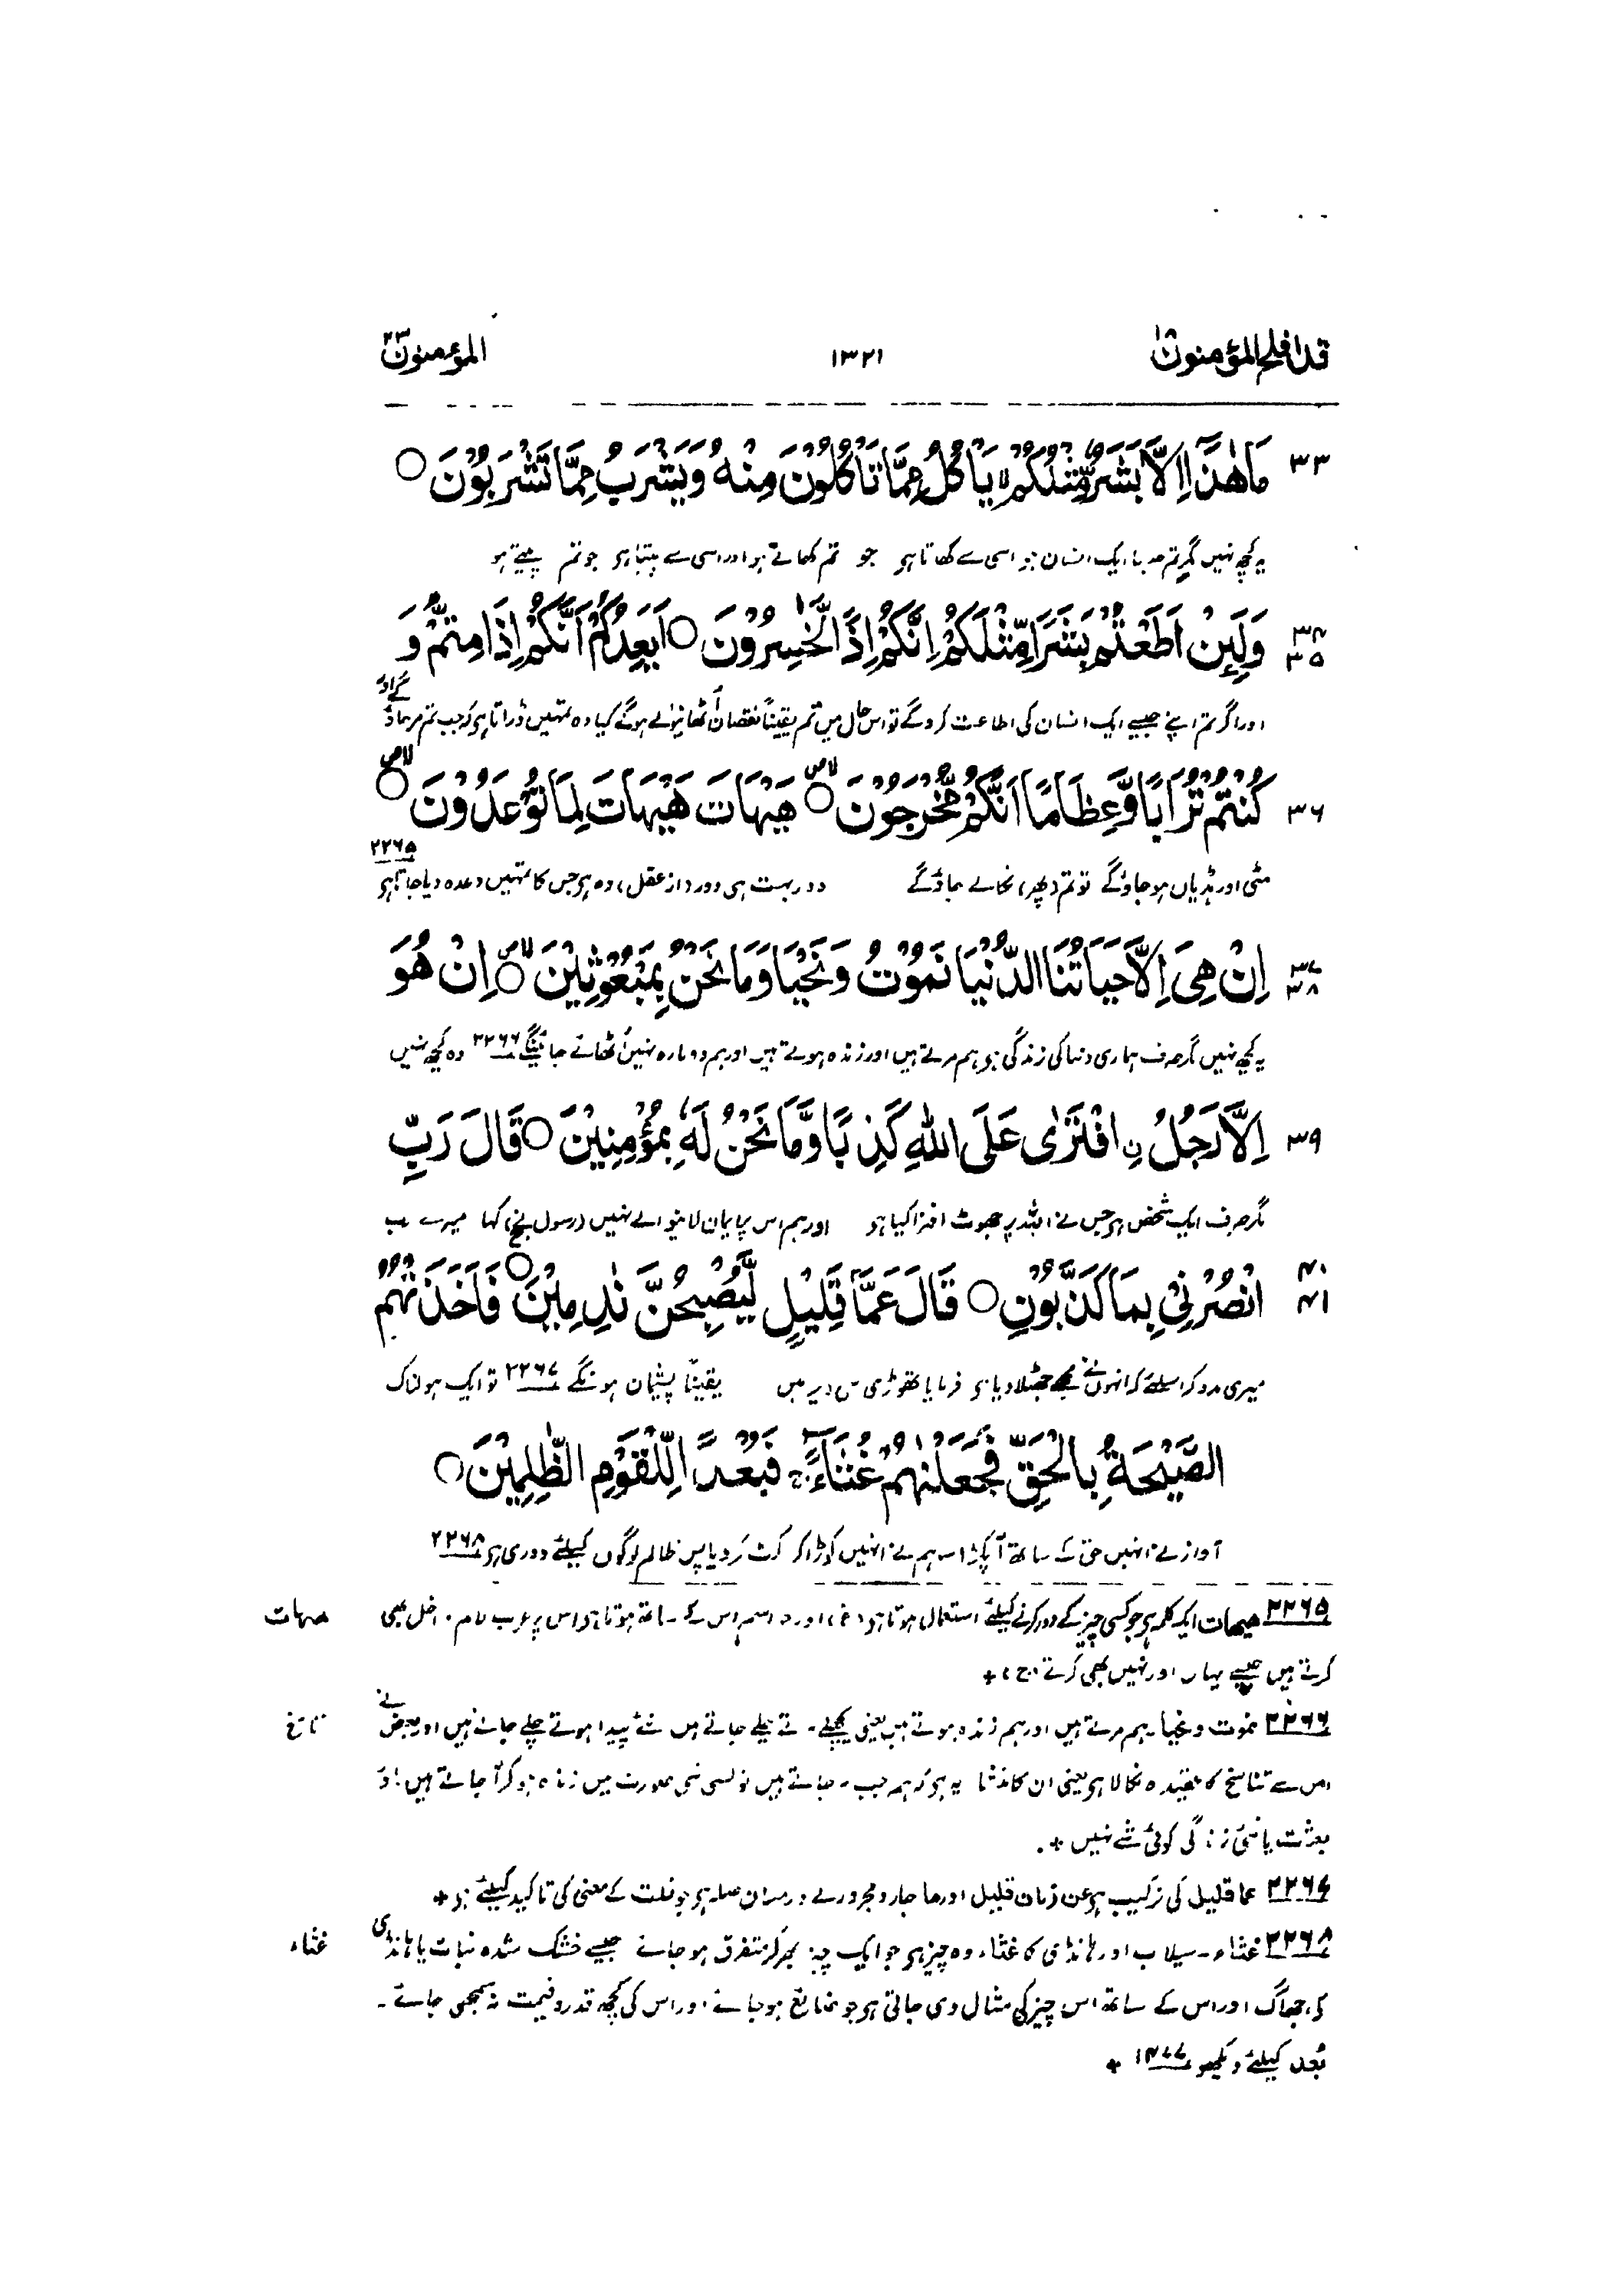 قد افلح المؤمنون ۱۸
۱۳۲۱
المؤمنون ۲۳
۳۳ مَا هٰذَاۤ اِلَّا بَشَرٌ مِّثْلُكُمْ ۙ يَاْكُلُ مِمَّا تَاْكُلُوْنَ مِنْهُ وَيَشْرَبُ مِمَّا تَشْرَبُوْنَ ○
یہ کچھ نہیں مگر تم جیسا ایک انسان ہو اسی سے کھاتا ہو جو تم کھاتے ہو اور اسی سے پیتا ہو جو تم پیتے ہو
۳۴ ۳۵ وَلَئِنْ اَطَعْتُمْ بَشَرًا مِّثْلَكُمْ اِنَّكُمْ اِذًا لَّخٰسِرُوْنَ ○ اَيَعِدُكُمْ اَنَّكُمْ اِذَا مِتُّمْ وَ
اور اگر تم اپنے جیسے ایک انسان کی اطاعت کرو گے تو اس حال میں تم یقیناً نقصان اُٹھانیوالے ہو گے کیا وہ تمہیں ڈراتا ہو کہ جب تم مرجاؤ گے اور
۳۶ كُنْتُمْ تُرَابًا وَّعِظَامًا اَنَّكُمْ مُّخْرَجُوْنَ ○ لاص هَيْهَاتَ هَيْهَاتَ لِمَا تُوْعَدُوْنَ ○ لاص
مٹی اور ہڈیاں ہو جاؤ گے تو تم (پھر) نکالے جاؤ گے دور بہت ہی دور (از عقل) وہ ہو جس کا تمہیں وعدہ دیا جاتا ہو ۲۲۶۵
۳۷ ۳۸ اِنْ هِيَ اِلَّا حَيَاتُنَا الدُّنْيَا نَمُوْتُ وَنَحْيَا وَمَا نَحْنُ بِمَبْعُوْثِيْنَ ○ لاص اِنْ هُوَ
یہ کچھ نہیں مگر صرف ہماری دنیا کی زندگی ہو ہم مرتے ہیں اور زندہ ہوتے ہیں اور ہم دوبارہ نہیں اُٹھائے جائینگے ۲۲۶۶ وہ کچھ نہیں
۳۹ اِلَّا رَجُلُ ِۨافْتَرٰى عَلَى اللّٰهِ كَذِبًا وَّمَا نَحْنُ لَهٗ بِمُؤْمِنِيْنَ ○ قَالَ رَبِّ
مگر صرف ایک شخص ہو جس نے اللہ پر جھوٹ افترا کیا ہو اور ہم اس پر ایمان لانیوالے نہیں (رسول نے) کہا میرے رب
۴۰ ۴۱ انْصُرْنِيْ بِمَا كَذَّبُوْنِ ○ قَالَ عَمَّا قَلِيْلٍ لَّيُصْبِحُنَّ نٰدِمِيْنَ ○ فَاَخَذَتْهُمُ
میری مدد کر اسلئے کہ انہوں نے مجھے جھٹلا دیا ہو فرمایا تھوڑی سی دیر میں یقیناً پشیمان ہونگے ۲۲۶۷ تو ایک ہولناک
الصَّيْحَةُ بِالْحَقِّ فَجَعَلْنٰهُمْ غُثَآءً ۚ فَبُعْدًا لِّلْقَوْمِ الظّٰلِمِيْنَ ○
آواز نے انہیں حق کے ساتھ آپکڑا سو ہم نے انہیں کوڑا کرکٹ کردیا پس ظالم لوگوں کیلئے دوری ہو ۲۲۶۸
۲۲۶۵ ھیھات ایک کلمہ ہو جو کسی چیز کے دور کرنے کیلئے استعمال ہوتا ہو (غ) اور جو اسم اس کے ساتھ ہوتا ہو اس پر عرب لام داخل بھی ھیہات
کرتے ہیں جیسے یہاں اور نہیں بھی کرتے (ج) +
۲۲۶۶ نموت و نحیا۔ ہم مرتے ہیں اور ہم زندہ ہوتے ہیں یعنی پچھلے مرتے چلے جاتے ہیں نئے پیدا ہوتے چلے جاتے ہیں اور بعض نے تناسخ
اس سے تناسخ کا عقیدہ نکالا ہو یعنی ان کا منشا یہ ہو کہ ہم جب مرجاتے ہیں تو کسی نئی صورت میں زندہ ہو کر آجاتے ہیں اور
بعثت یا نئی زندگی کوئی شے نہیں +
۲۲۶۷ عما قلیل کی ترکیب ہو عن زمان قلیل اور ما جار و مجرور کے درمیان صلہ ہو جو قلت کے معنی کی تاکید کیلئے ہو +
۲۲۶۸ غثاء۔ سیلاب اور ہانڈی کا غثاء وہ چیز ہو جو ایک جگہ بھر کر متفرق ہو جائے جیسے خشک شدہ نبات یا ہانڈی غثاء
کی جھاگ اور اس کے ساتھ اس چیز کی مثال دی جاتی ہو جو ضائع ہو جائے اور اس کی کچھ قدر و قیمت نہ سمجھی جائے۔
بُعد کیلئے دیکھو ۱۴۷۷ +